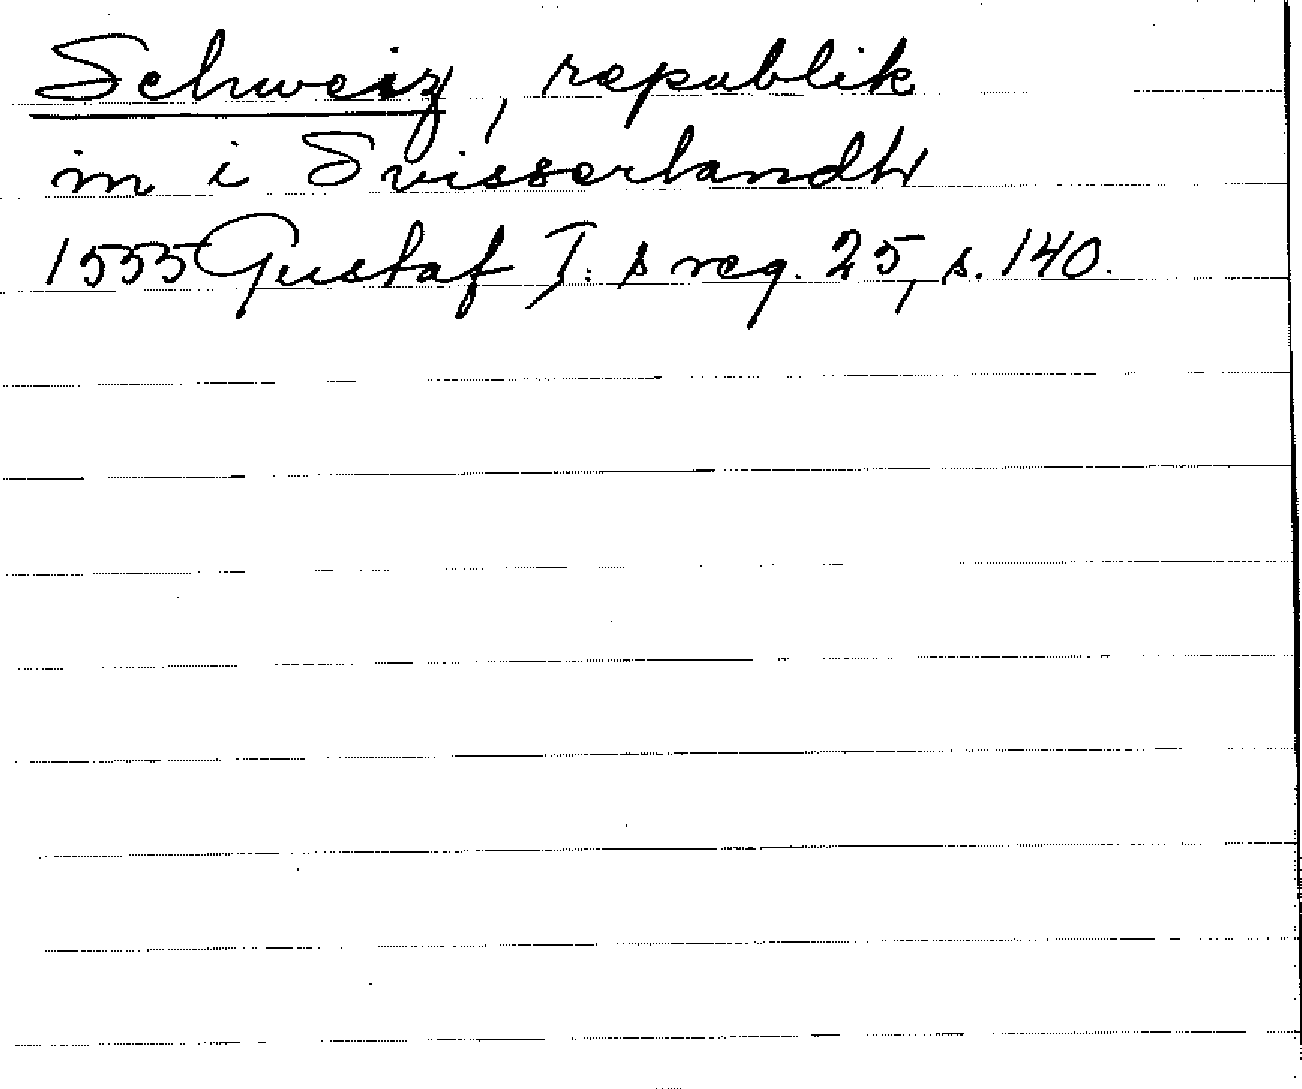 Schweiz, republik
in i Svisserlandh
1555 Gustaf I:s reg. 25, s. 140.